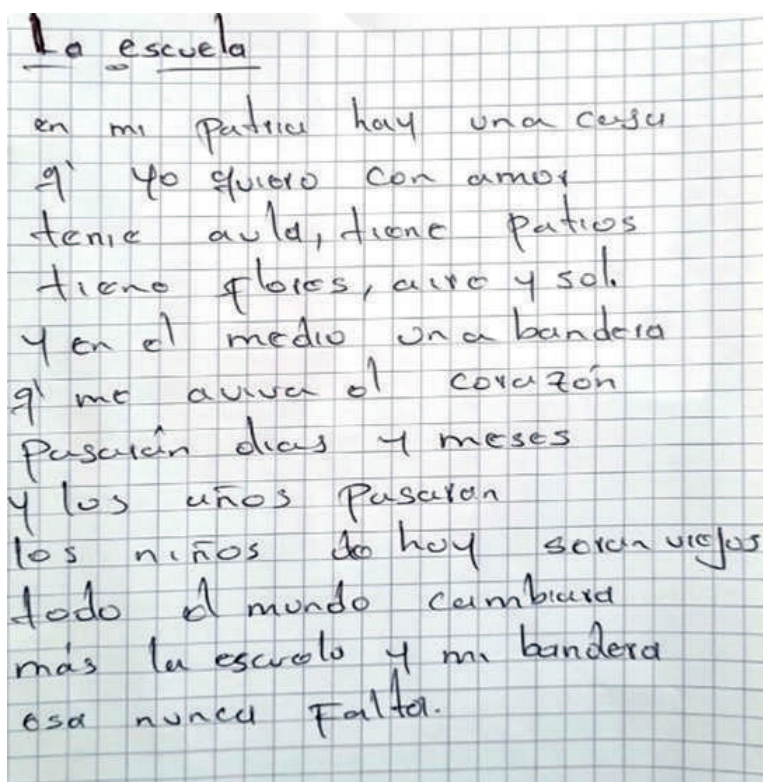 La escuela
en mi patria hay una casa
q' yo quiero con amor
tenie aula, tiene patios
tiene flores, aire y sol.
y en el medio una bandera
q' me aviva el corazón
pasarán dias y meses
y los años pasaran
los niños de hoy seran viejos
todo el mundo cambiara
más la escuela y mi bandera
esa nunca Falta.